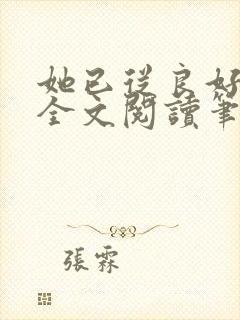 她已從良好
全文閱讀筆
張霖